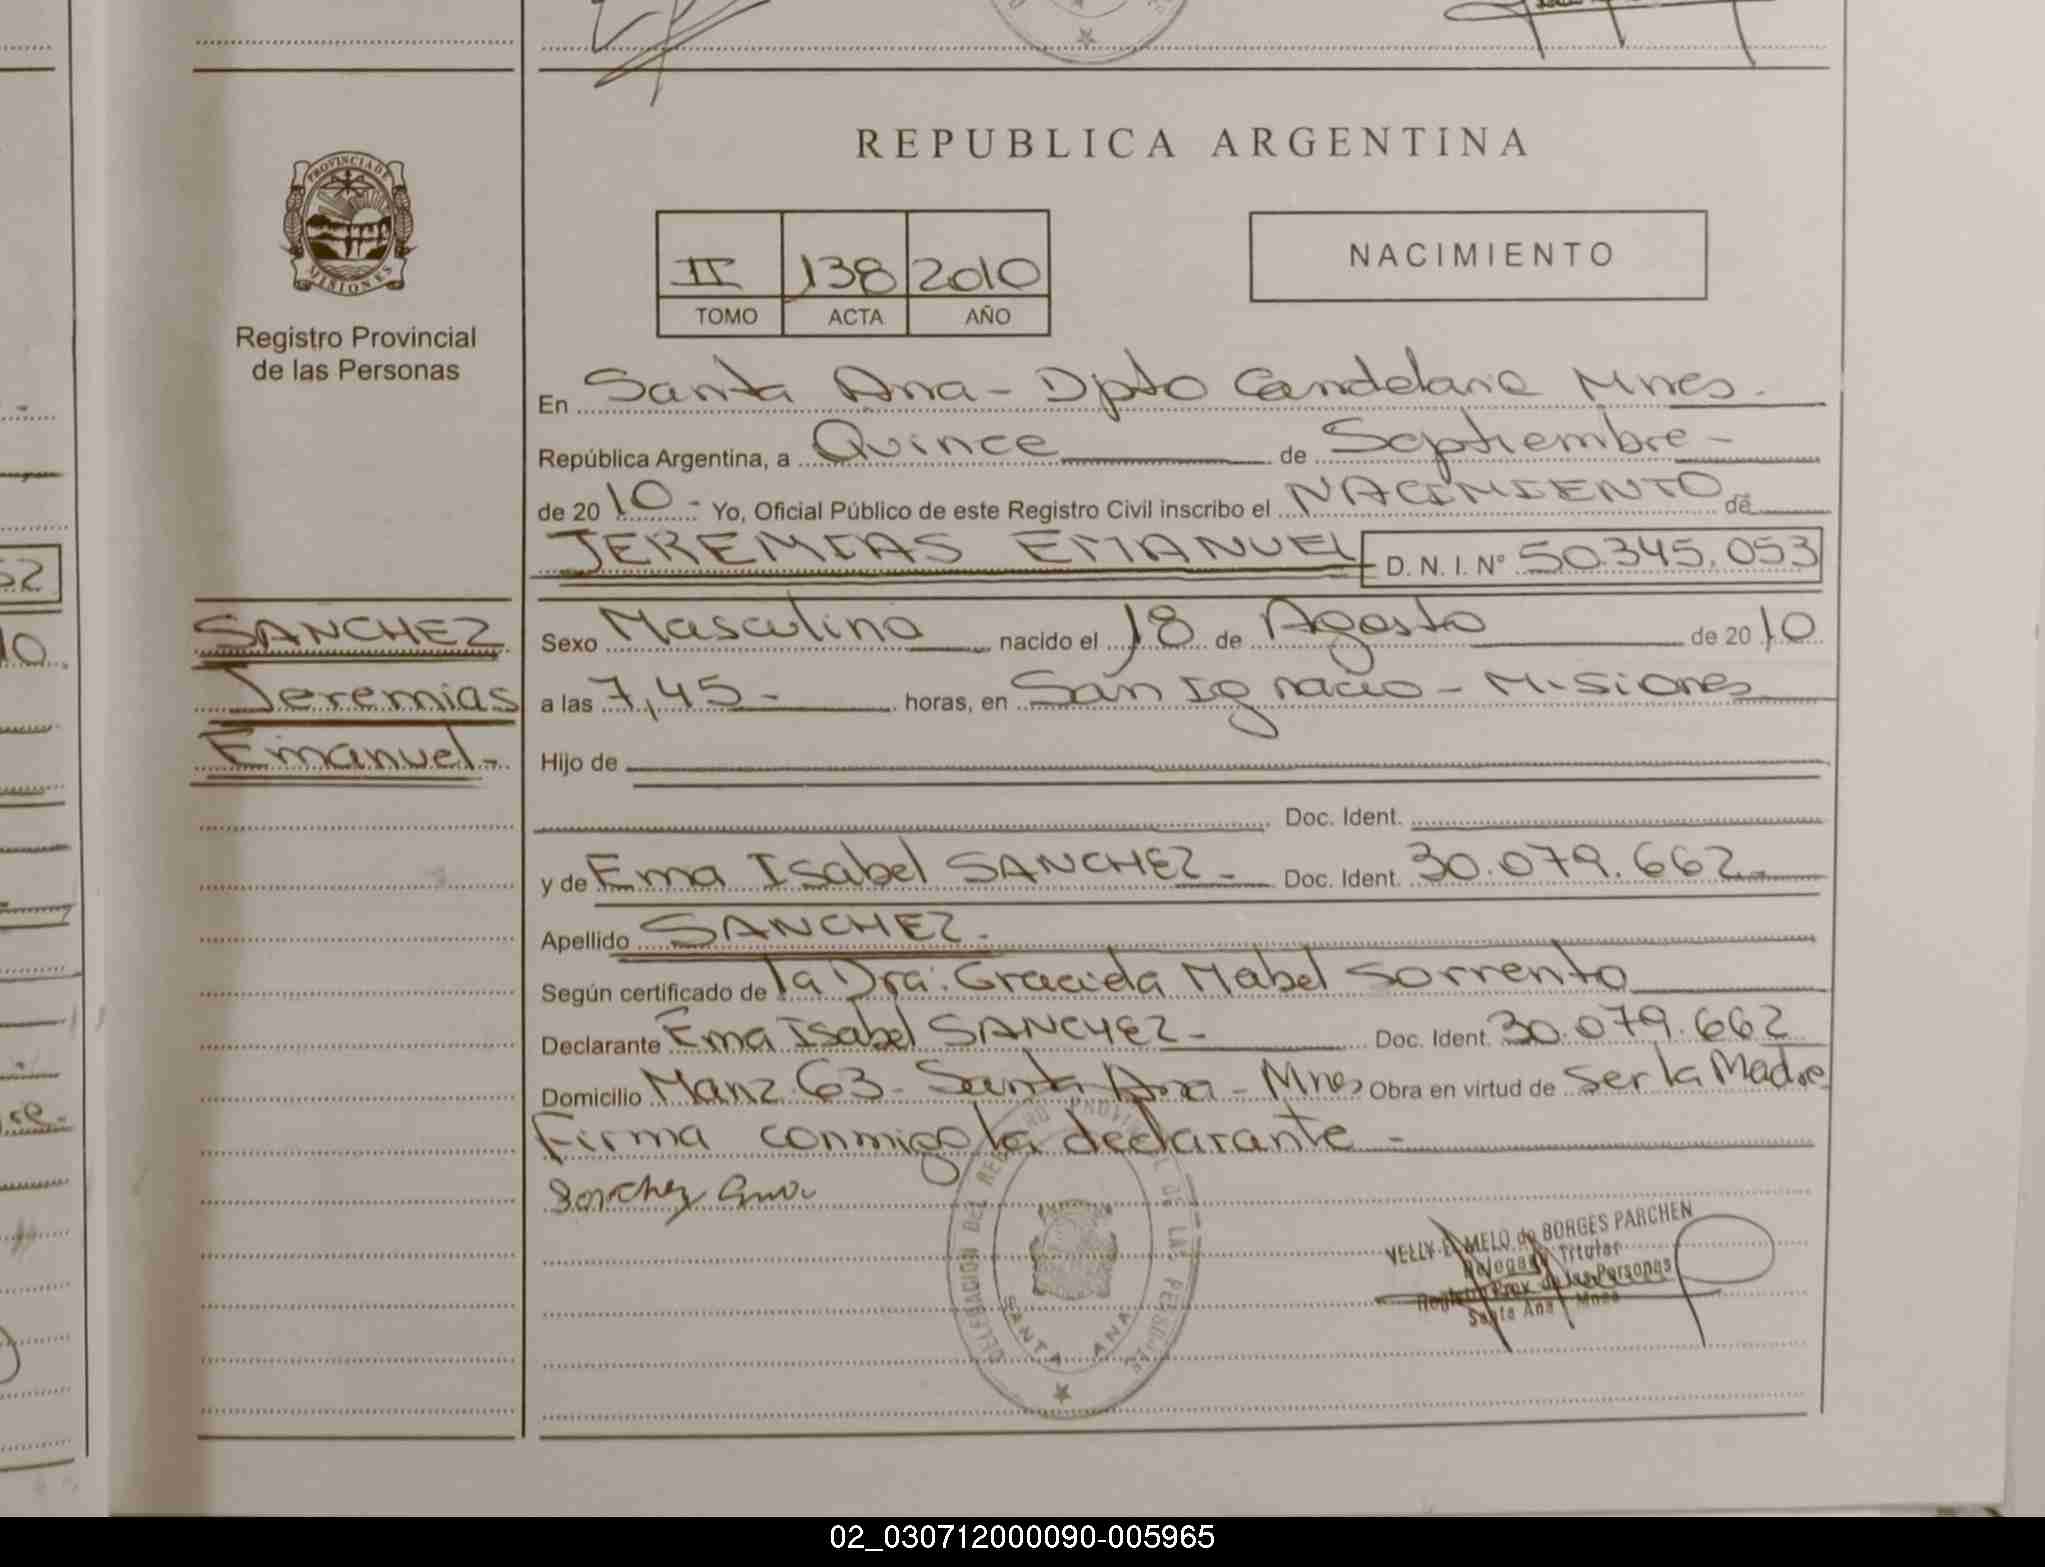 REPUBLICA ARGENTINA
PROVINCIA DE
MISIONES
Registro Provincial
de las Personas
II 138 2010
TOMO ACTA AÑO
NACIMIENTO
En Santa Ana - Dpto Candelaria Mnes.
República Argentina, a Quince de Septiembre -
de 2010 - Yo, Oficial Público de este Registro Civil inscribo el NACIMIENTO de
JEREMIAS EMANUEL D. N. I. Nº 50.345.053
SANCHEZ
Jeremias
Emanuel -
Sexo Masculino nacido el 18 de Agosto de 2010
a las 7,45 - horas, en San Ignacio - Misiones
Hijo de
Doc. Ident.
y de Ema Isabel SANCHEZ - Doc. Ident. 30.079.662 -
Apellido SANCHEZ -
Según certificado de la Dra. Graciela Mabel Sorrento
Declarante Ema Isabel SANCHEZ - Doc. Ident. 30.079.662
Domicilio Manz 63 - Santa Ana - Mnes Obra en virtud de Ser la Madre
Firma conmigo la declarante -
Sanchez Ema
DELEGACION DEL REGISTRO PROVINCIAL DE LAS PERSONAS
SANTA ANA
MELO de BORGES PARCHEN
Delegada Titular
Registro Prov. de las Personas
Santa Ana Mnes
52
10
re -
02_030712000090-005965